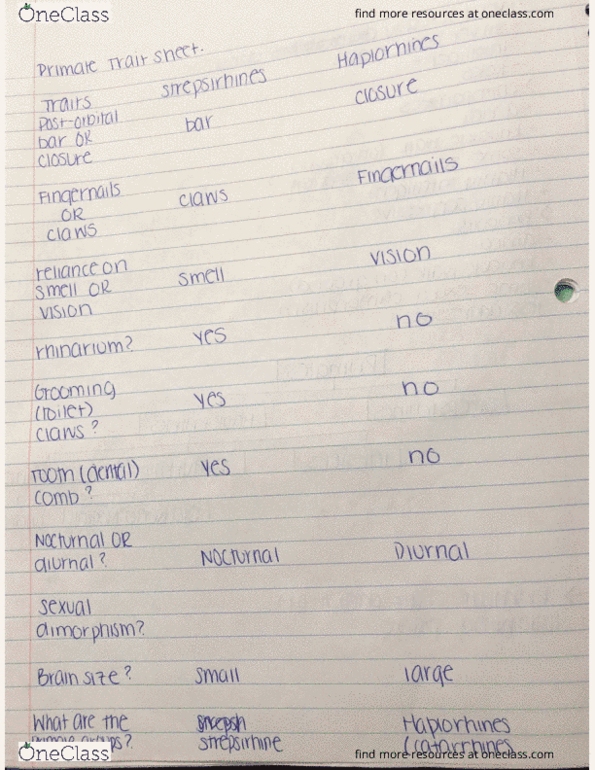 OneClass find more resources at oneclass.com
Primate Trait sheet.
Traits strepsirhines Haplorhines
Post-orbital bar closure
bar OR
closure
Fingernails claws Fingernails
OR
claws
reliance on smell vision
smell OR
vision
rhinarium? yes no
Grooming yes no
(toilet)
claws?
tooth (dental) yes no
comb?
Nocturnal OR Nocturnal Diurnal
diurnal?
sexual
dimorphism?
Brain size? small large
What are the Haplorhines
strepsirhine (catarrhines
OneClass find more resources at oneclass.com